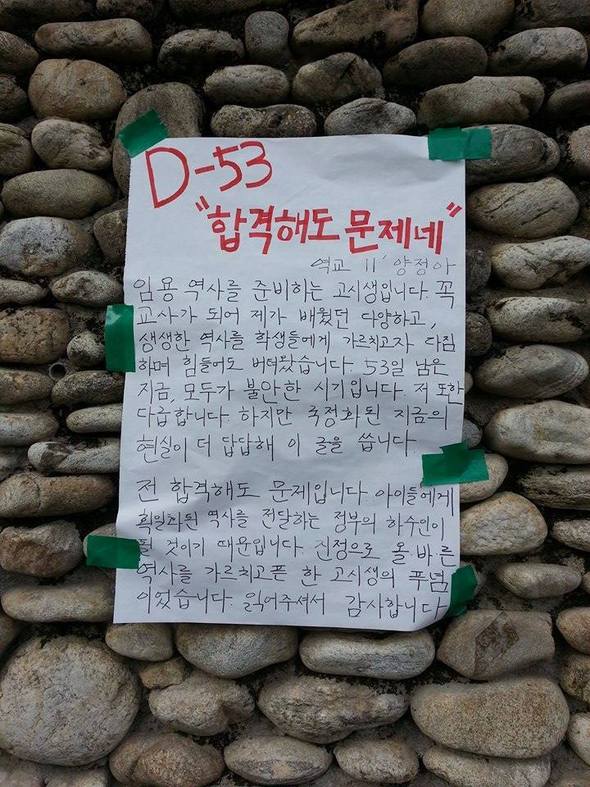 D-53
"합격해도 문제네"
역교 11' 양정아
임용 역사를 준비하는 고시생입니다. 꼭
교사가 되어 제가 배웠던 다양하고,
생생한 역사를 학생들에게 가르치고자 다짐
하며 힘들어도 버텨왔습니다. 53일 남은
지금, 모두가 불안한 시기입니다. 저 또한
다급합니다. 하지만 국정화된 지금의
현실이 더 답답해 이 글을 씁니다
전 합격해도 문제입니다 아이들에게
획일화된 역사를 전달하는 정부의 하수인이
될 것이기 때문입니다. 진정으로 올바른
역사를 가르치고픈 한 고시생의 푸념
이었습니다. 읽어주셔서 감사합니다